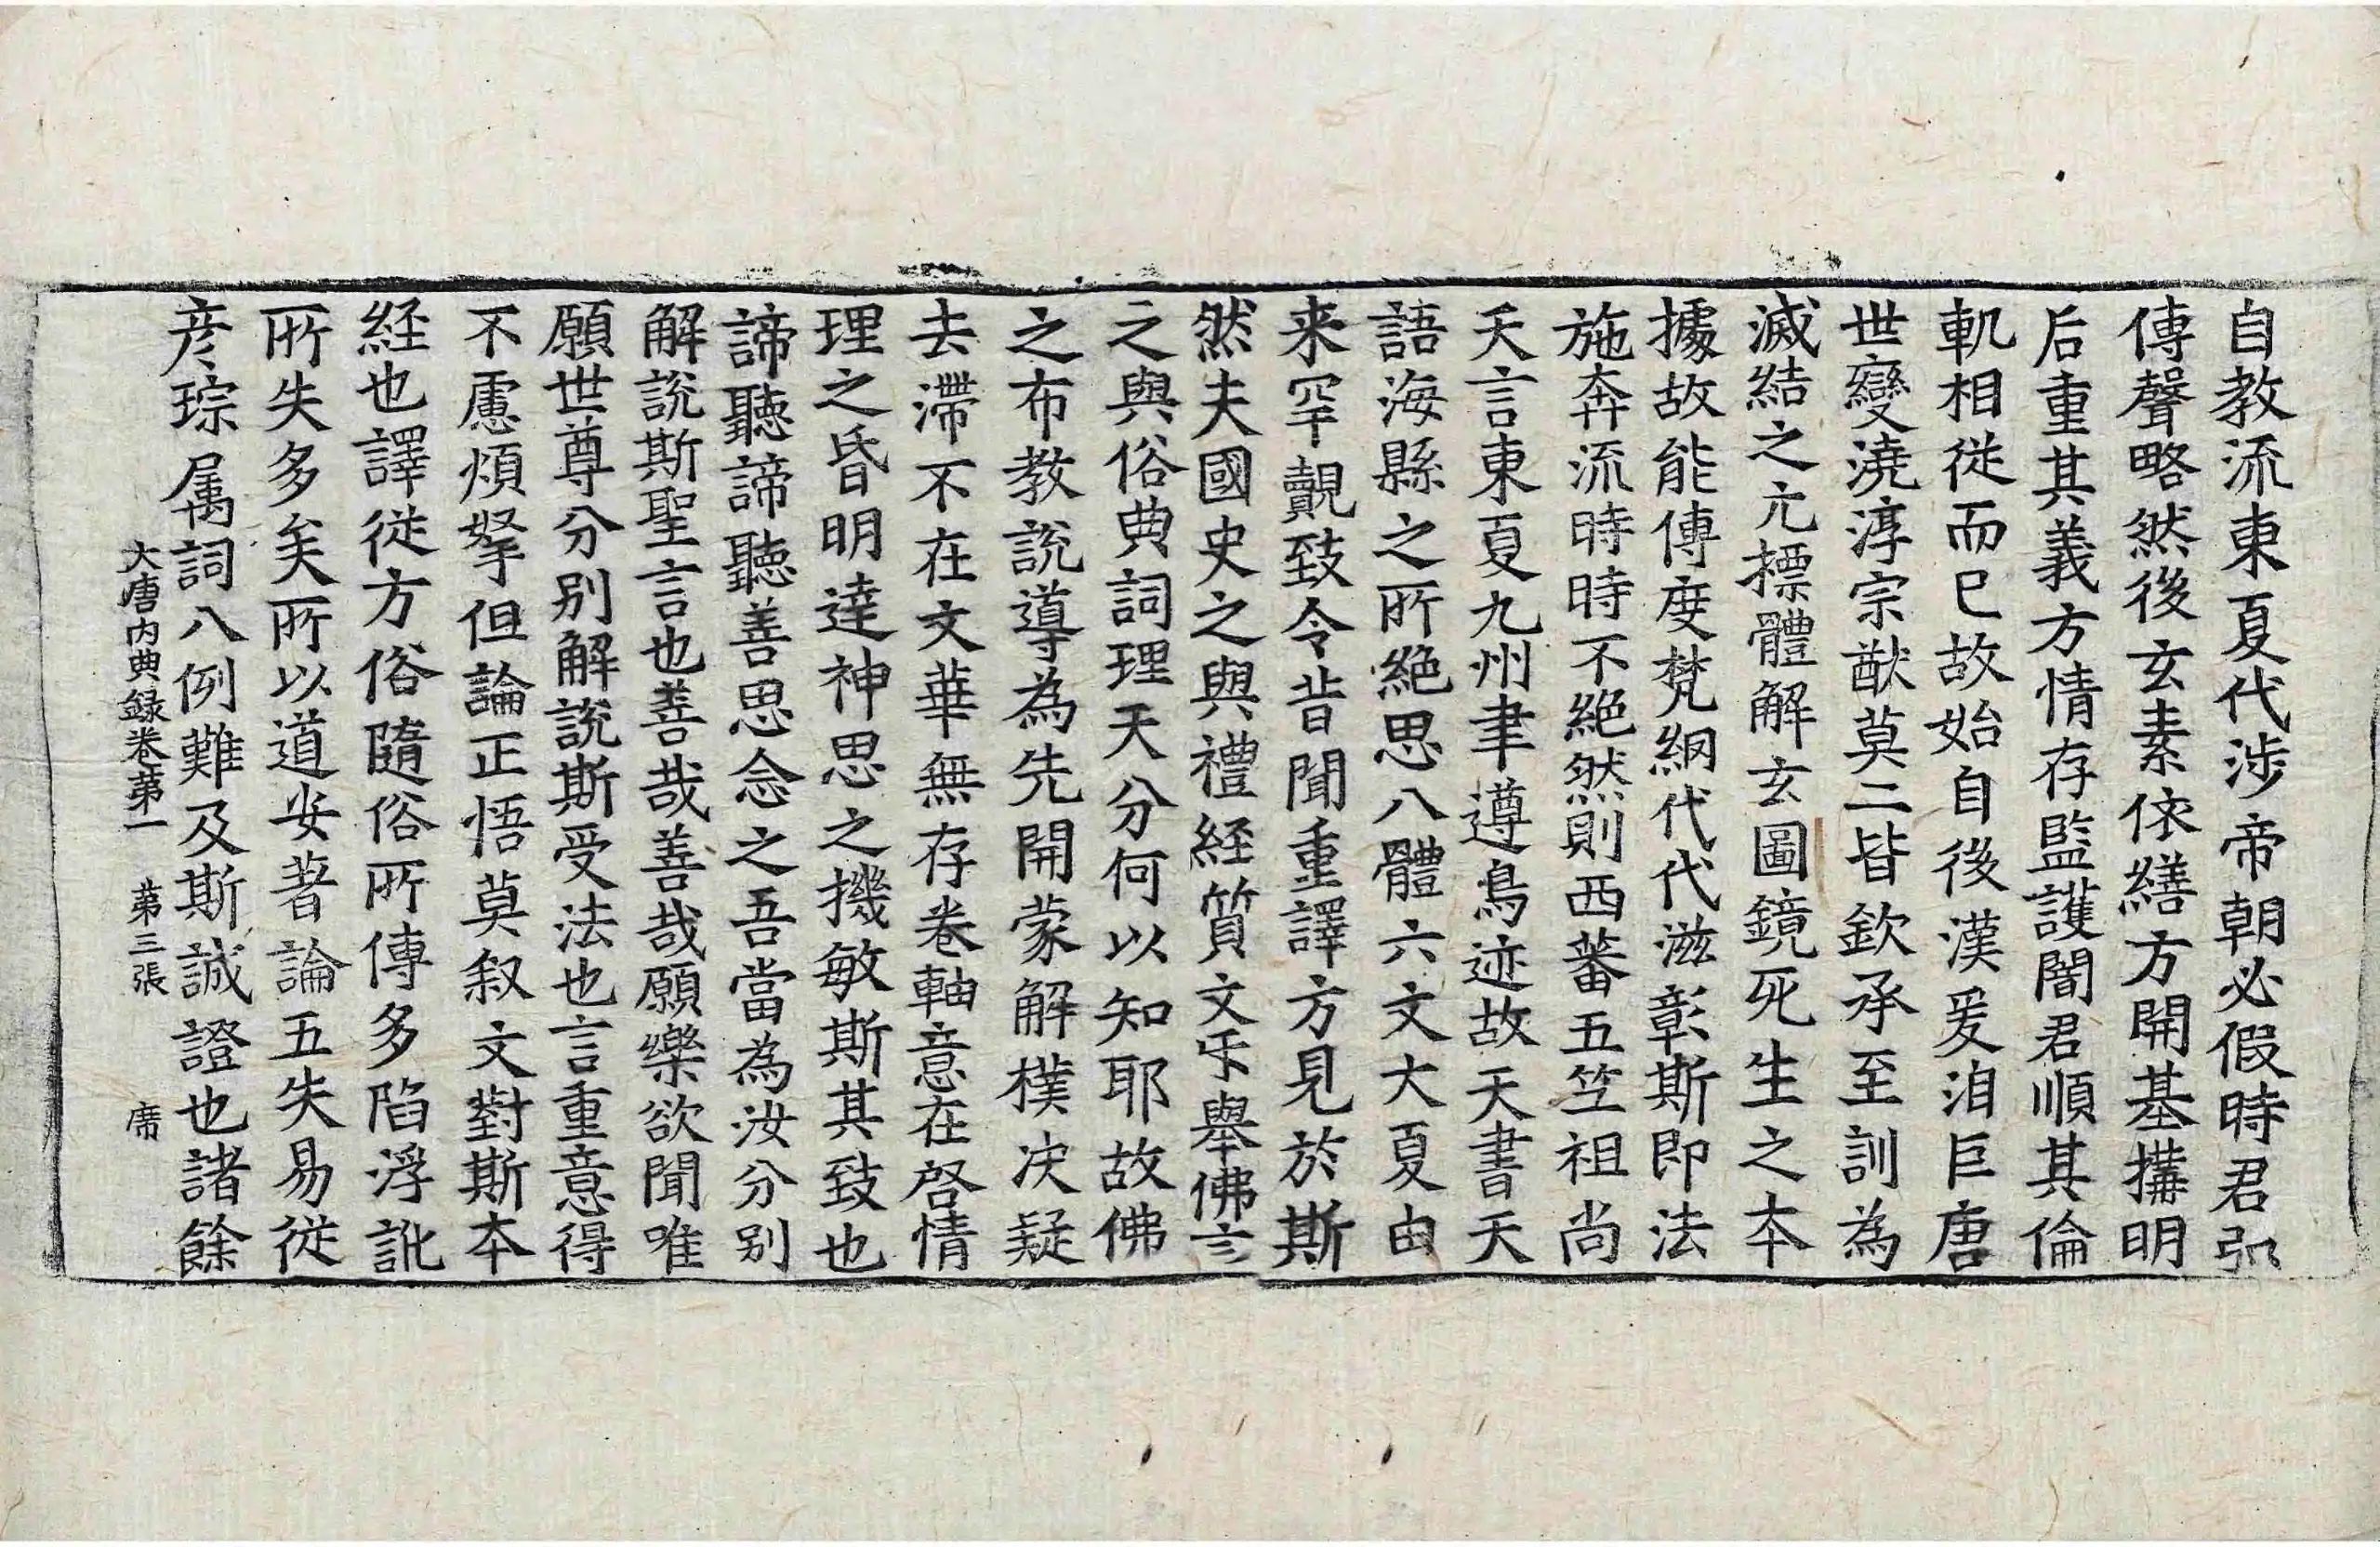 自教流東夏代涉帝朝必假時君弘
傳聲略然後玄素依繕方開基搆明
后重其義方情存監護闇君順其倫
軌相從而已故始自後漢爰洎巨唐
世變澆淳宗猷莫二皆欽承至訓為
滅結之元標體解玄圖鏡死生之本
據故能傳度梵網代代滋彰斯即法
施奔流時時不絕然則西蕃五竺祖尚
天言東夏九州聿遵鳥迹故天書天
語海縣之所絕思八體六文大夏由
来罕覿致令昔聞重譯方見於斯
然夫國史之與禮経質文乐舉佛言
之與俗典詞理天分何以知耶故佛
之布教說導為先開蒙解樸决疑
去滯不在文華無存卷軸意在啓情
理之昏明達神思之機敏斯其致也
諦聽諦聽善思念之吾當為汝分别
解說斯聖言也善哉善哉願樂欲聞唯
願世尊分别解說斯受法也言重意得
不慮煩拏但論正悟莫叙文對斯本
経也譯從方俗隨俗所傳多陷浮訛
所失多矣所以道安著論五失易從
彥琮属詞八例難及斯誠證也諸餘
大唐内典錄卷第一 第三張 席